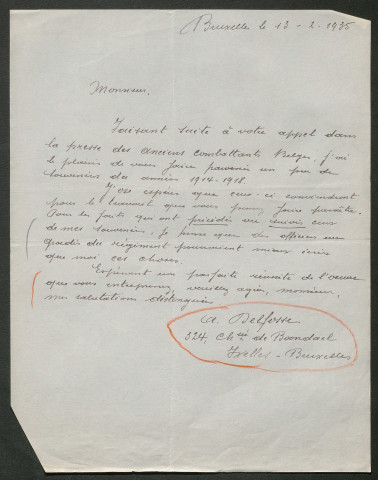 Bruxelles le 13 - 2 - 1936
Monsieur,
Faisant suite à votre appel dans
la presse des anciens combattants Belges, j'ai
le plaisir de vous faire parvenir un peu de
souvenirs des années 1914-1918.
J'ose espérer que ceux-ci conviendront
pour le travail que vous pensez faire paraître.
Pour les faits qui ont précédés ou suivis ceux
de mes souvenirs, je pense que des officiers ou
gradés du régiment pourraient mieux écrire
que moi ces choses.
Espérant une parfaite réussite de l'œuvre
que vous entreprenez veuillez agréer, monsieur,
mes salutations distinguées
A. Delfosse
324, Chée de Boondael
Ixelles - Bruxelles